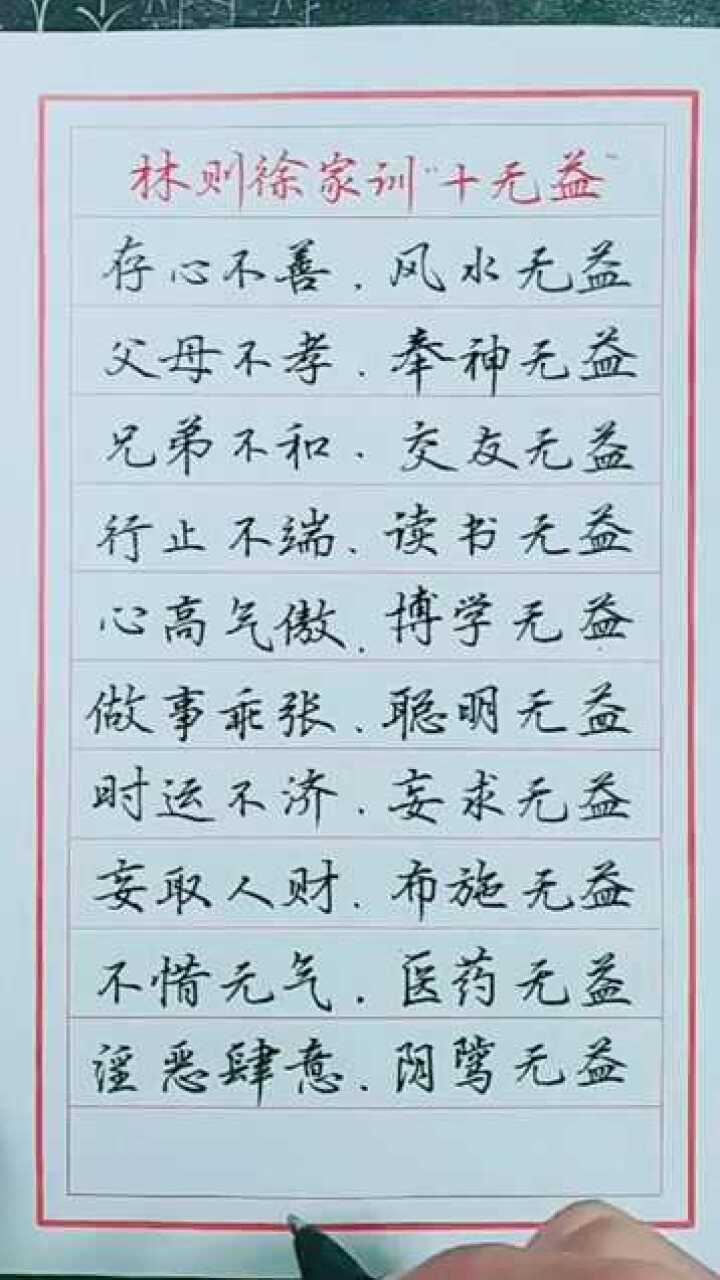 林则徐家训"十无益"
存心不善.风水无益
父母不孝.奉神无益
兄弟不和.交友无益
行止不端.读书无益
心高气傲.博学无益
做事乖张.聪明无益
时运不济.妄求无益
妄取人财.布施无益
不惜元气.医药无益
淫恶肆意.阴骘无益